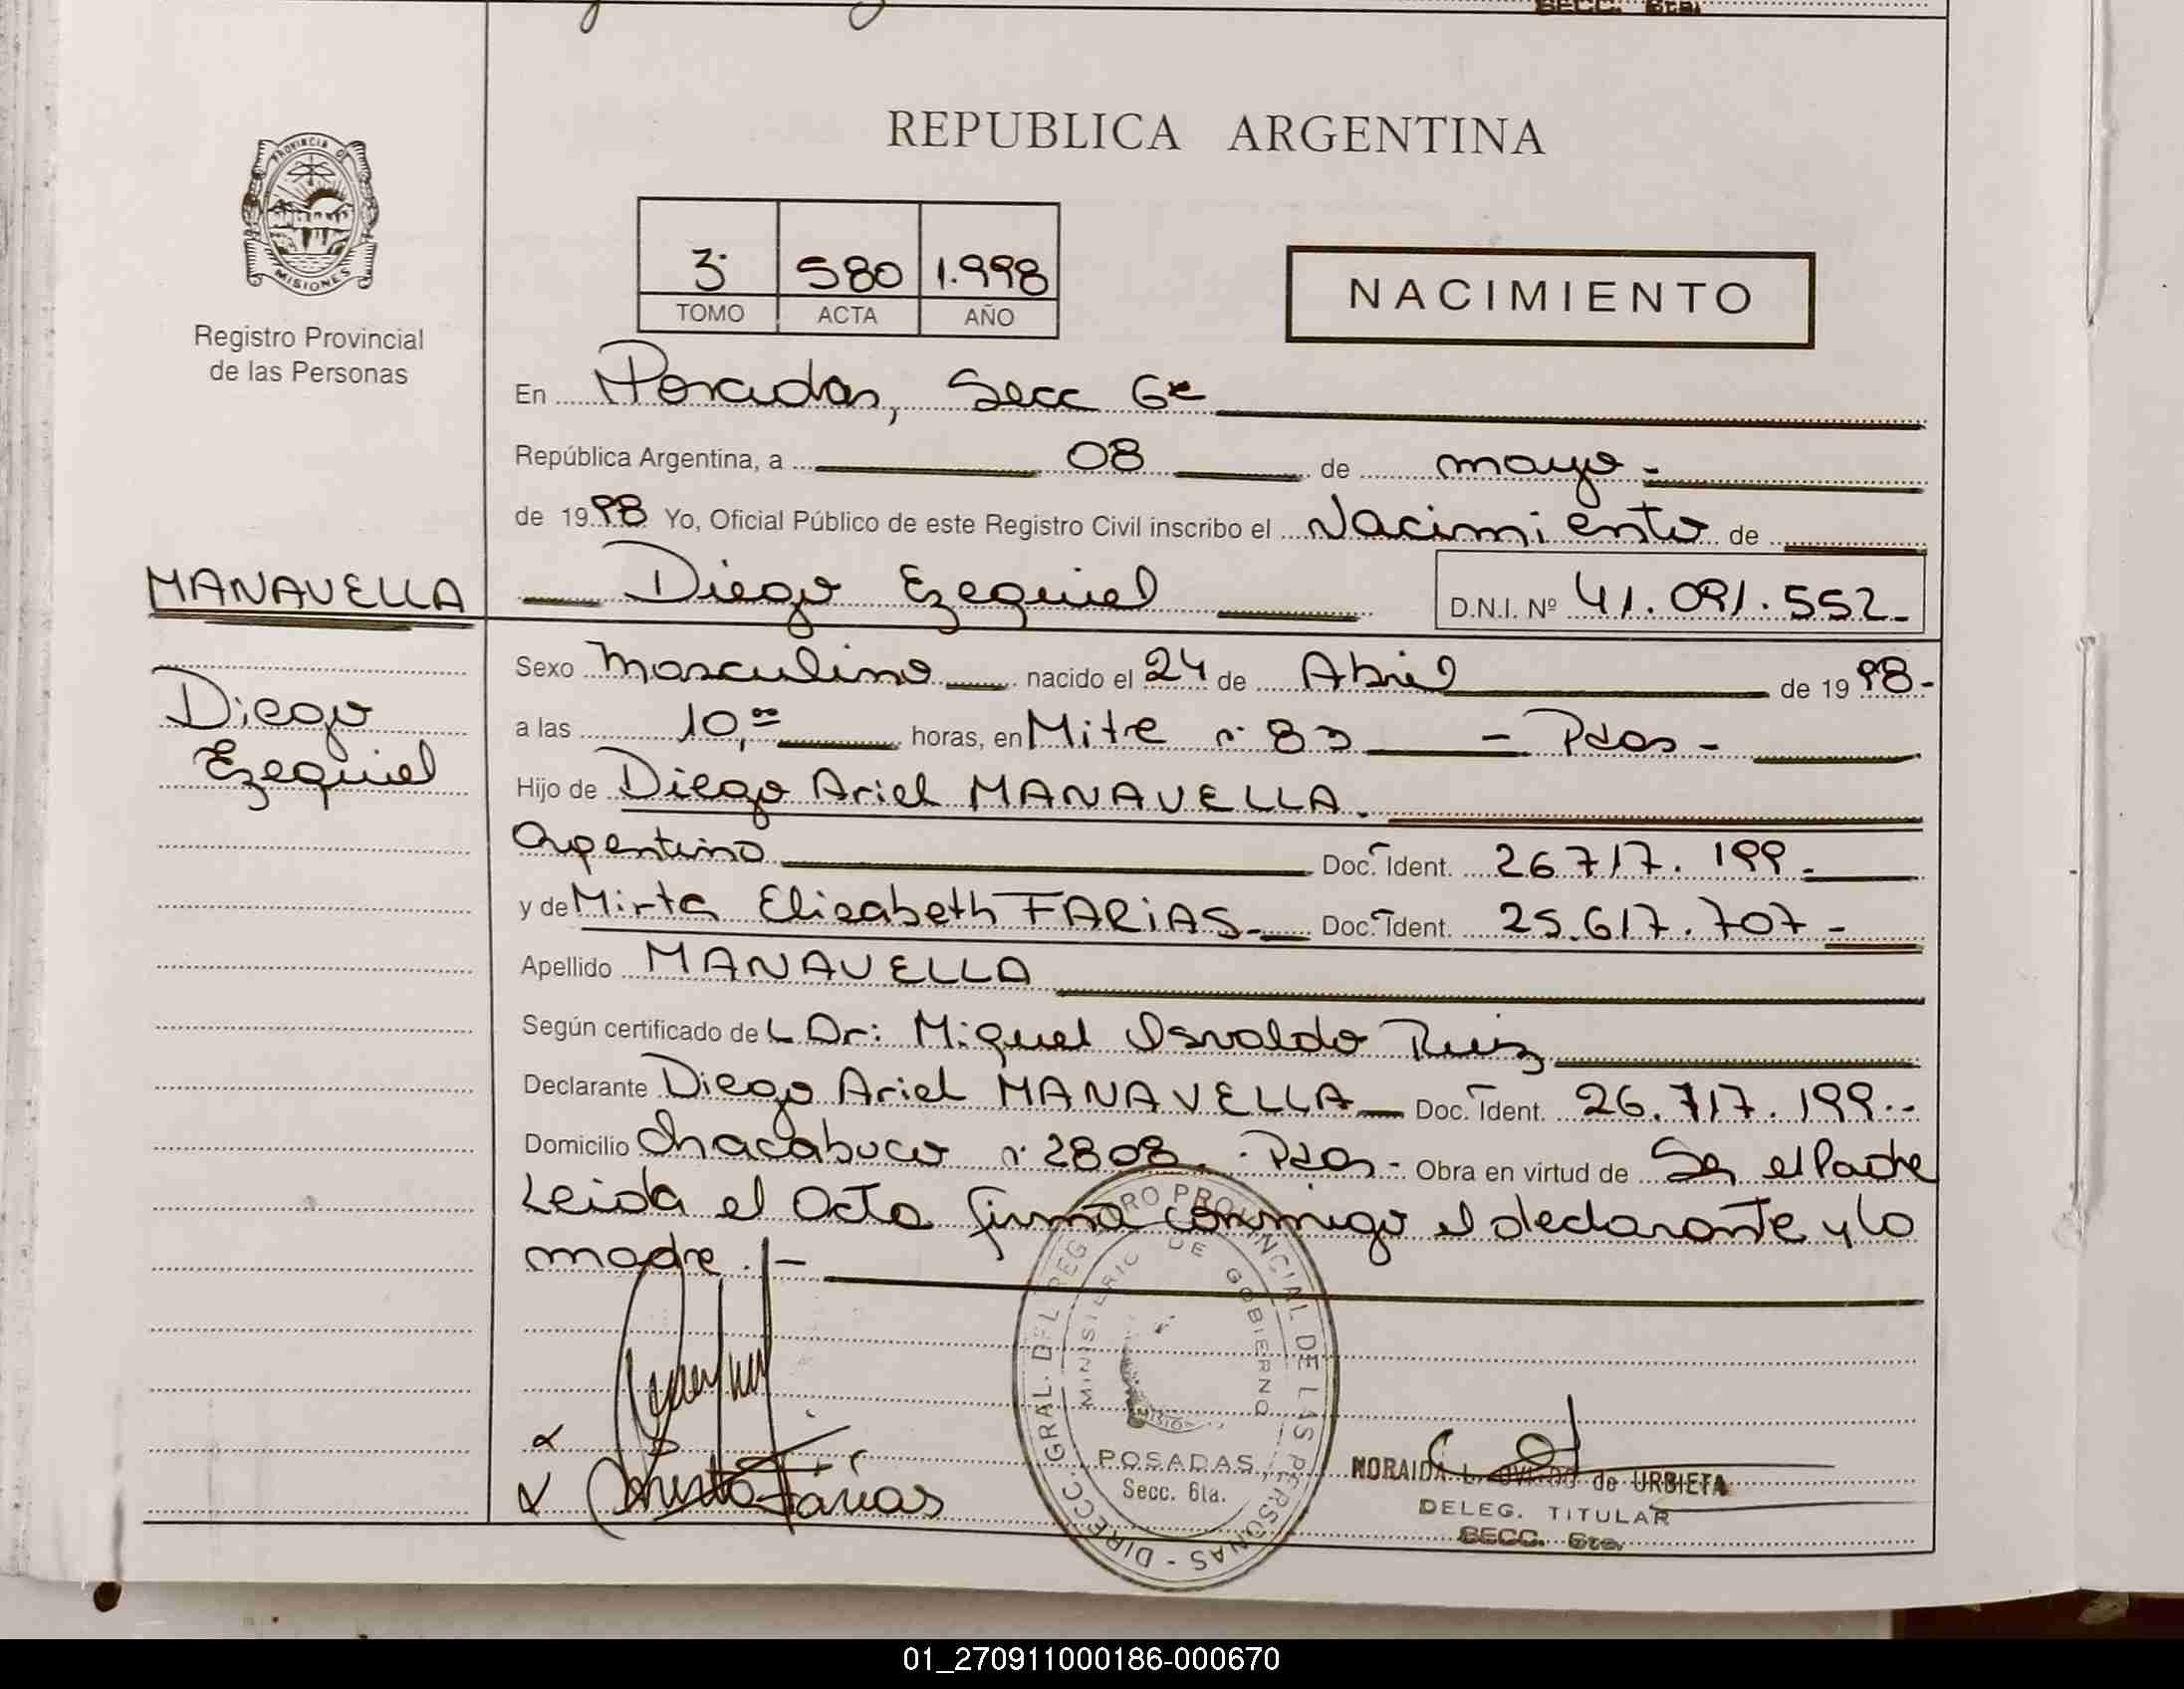 SECC. 6ta.
REPUBLICA ARGENTINA
PROVINCIA DE
MISIONES
Registro Provincial
de las Personas
3· 580 1.998
TOMO ACTA AÑO
NACIMIENTO
En Posadas, Secc 6ta
República Argentina, a 08 de mayo -
de 1998 Yo, Oficial Público de este Registro Civil inscribo el Nacimiento de
MANAVELLA Diego Ezequiel D.N.I. Nº 41.091.552-
Sexo Masculino nacido el 24 de Abril de 1998-
Diego
Ezequiel
a las 10,00 horas, en Mitre n· 83 - Pdas -
Hijo de Diego Ariel MANAVELLA.
Argentino Doc. Ident. 26717.199-
y de Mirta Elisabeth FARIAS- Doc. Ident. 25.617.707-
Apellido MANAVELLA
Según certificado de L Dr: Miguel Osvaldo Ruiz
Declarante Diego Ariel MANAVELLA Doc. Ident. 26.717.199.-
Domicilio Chacabuco n· 2808. - Pdas - Obra en virtud de Ser el Padre
Leida el Acta firma conmigo el declarante y la
madre.-
DIRECC. GRAL. DEL REGISTRO PROVINCIAL DE LAS PERSONAS -
MINISTERIO DE GOBIERNO
POSADAS
Secc. 6ta.
Mirta Farias
NORAIDA L. OVIEDO de URBIETA
DELEG. TITULAR
SECC. 6ta.
01_270911000186-000670